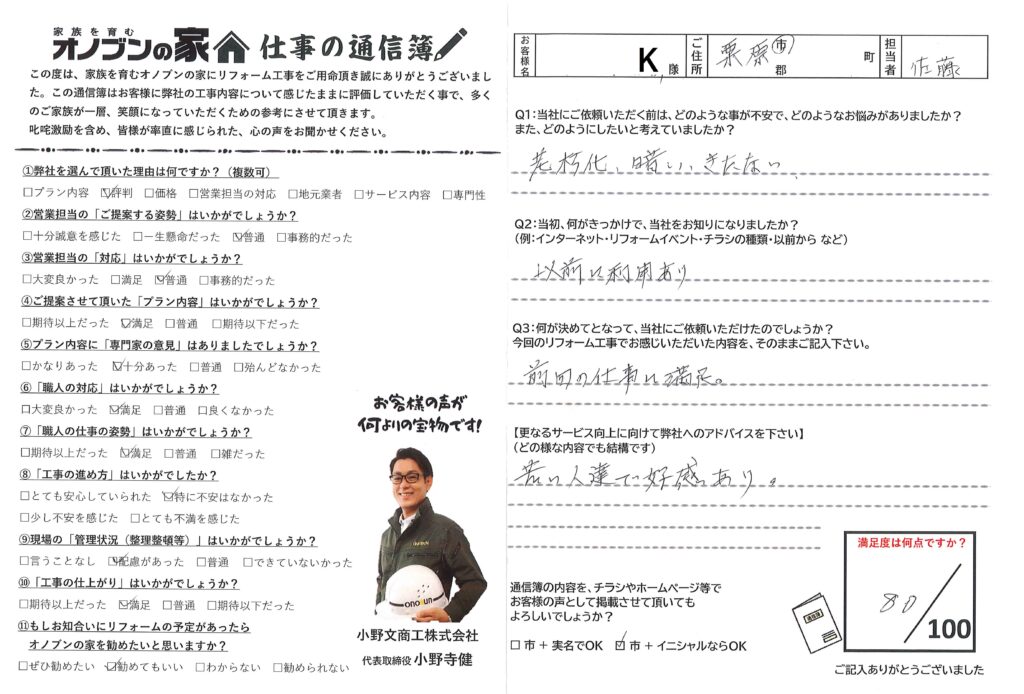 家族を育む
オノブンの家 仕事の通信簿
この度は、家族を育むオノブンの家にリフォーム工事をご用命頂き誠にありがとうございまし
た。この通信簿はお客様に弊社の工事内容について感じたままに評価していただく事で、多く
のご家族が一層、笑顔になっていただくための参考にさせて頂きます。
叱咤激励を含め、皆様が率直に感じられた、心の声をお聞かせください。
①弊社を選んで頂いた理由は何ですか?(複数可)
□プラン内容 ☑評判 □価格 □営業担当の対応 □地元業者 □サービス内容 □専門性
②営業担当の「ご提案する姿勢」はいかがでしょうか?
□十分誠意を感じた □一生懸命だった ☑普通 □事務的だった
③営業担当の「対応」はいかがでしょうか?
□大変良かった □満足 ☑普通 □事務的だった
④ご提案させて頂いた「プラン内容」はいかがでしょうか?
□期待以上だった ☑満足 □普通 □期待以下だった
⑤プラン内容に「専門家の意見」はありましたでしょうか?
□かなりあった ☑十分あった □普通 □殆んどなかった
⑥「職人の対応」はいかがでしょうか?
□大変良かった ☑満足 □普通 □良くなかった
⑦「職人の仕事の姿勢」はいかがでしょうか?
□期待以上だった ☑満足 □普通 □雑だった
⑧「工事の進め方」はいかがでしたか?
□とても安心していられた ☑特に不安はなかった
□少し不安を感じた □とても不満を感じた
⑨現場の「管理状況(整理整頓等)」はいかがでしょうか?
□言うことなし ☑配慮があった □普通 □できていないかった
⑩「工事の仕上がり」はいかがでしょうか?
□期待以上だった ☑満足 □普通 □期待以下だった
⑪もしお知合いにリフォームの予定があったら
オノブンの家を勧めたいと思いますか?
□ぜひ勧めたい ☑勧めてもいい □わからない □勧められない
お客様の声が
何よりの宝物です!
onobun
小野文商工株式会社
代表取締役 小野寺健
お客様名 K 様 ご住所 栗原 市 郡 町 担当者 佐藤
Q1:当社にご依頼いただく前は、どのような事が不安で、どのようなお悩みがありましたか?
また、どのようにしたいと考えていましたか?
老朽化、暗い、きたない
Q2:当初、何がきっかけで、当社をお知りになりましたか?
(例:インターネット・リフォームイベント・チラシの種類・以前から など)
以前に利用あり
Q3:何が決めてとなって、当社にご依頼いただけたのでしょうか?
今回のリフォーム工事でお感じいただいた内容を、そのままご記入下さい。
前回の仕事に満足。
【更なるサービス向上に向けて弊社へのアドバイスを下さい】
(どの様な内容でも結構です)
若い人達で好感あり。
満足度は何点ですか?
80/100
通信簿の内容を、チラシやホームページ等で
お客様の声として掲載させて頂いても
よろしいでしょうか?
□ 市 + 実名でOK ☑ 市 + イニシャルならOK
通信簿
ご記入ありがとうございました